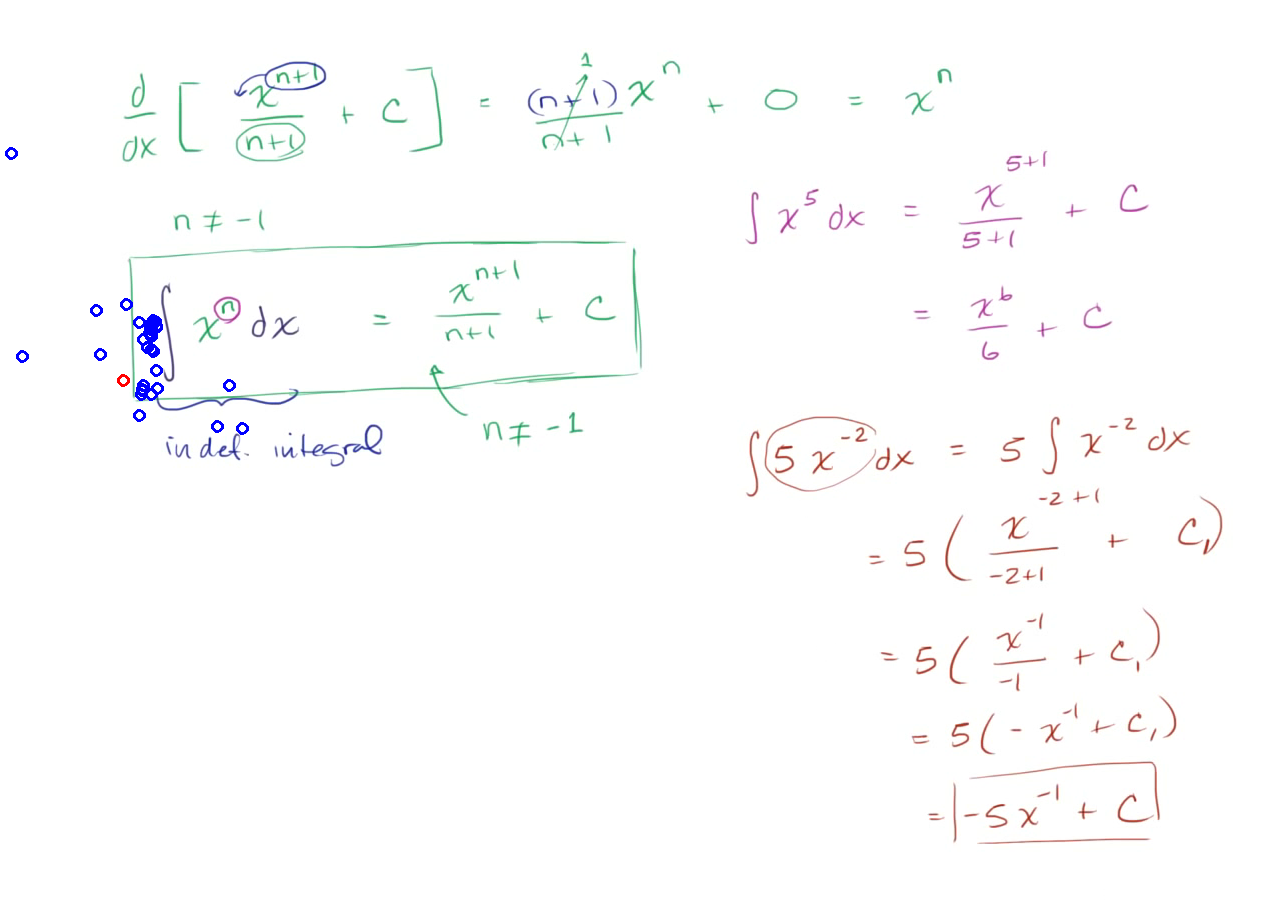 d/dx [ x^(n+1)/(n+1) + C ] = (n+1)x^n/(n+1) 1 + 0 = x^n
n ≠ -1
∫ x^n dx = x^(n+1)/(n+1) + C
n ≠ -1
indef. integral
∫ x^5 dx = x^(5+1)/(5+1) + C
= x^6/6 + C
∫ 5 x^(-2) dx = 5 ∫ x^(-2) dx
= 5 ( x^(-2+1)/(-2+1) + C₁ )
= 5 ( x^(-1)/(-1) + C₁ )
= 5 ( - x^(-1) + C₁ )
= -5x^(-1) + C